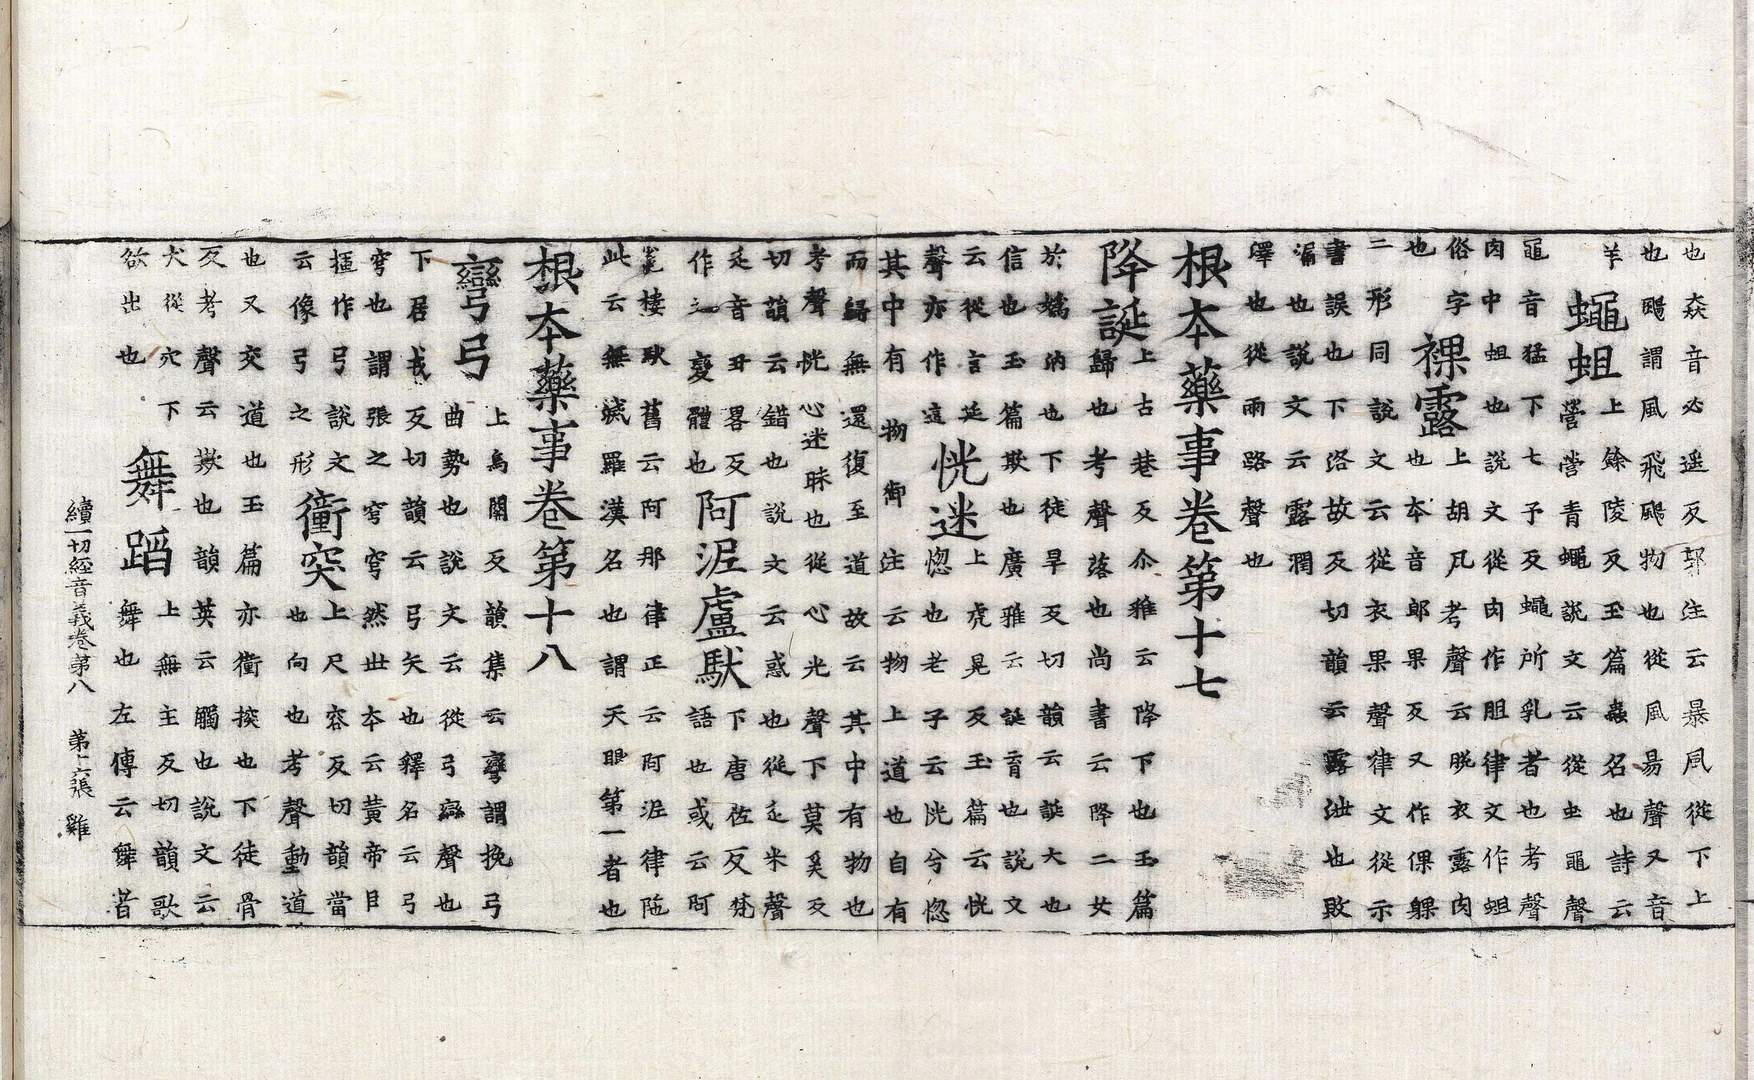 也猋音必遥反郭注云暴風從下上
也颺謂風飛颺物也從風昜聲又音
羊
蠅蛆
上餘陵反玉篇蟲名也詩云
營營青蠅說文云從虫黽聲
黽音猛下七予反蠅所乳者也考聲
肉中蛆也說文從肉作胆律文作蛆
俗字
也
裸露
上胡凡考聲云脫衣露肉
本音郎果反又作倮躶
二形同說文云從衣果聲律文從示
書誤也下洛故反切韻云露泄也敗
漏也說文云露潤
澤也從雨路聲也
根本藥事卷第十七
降誕
上古巷反尒雅云降下也玉篇
歸也考聲落也尚書云降二女
於嬀汭也下徒旱反切韻云誕大也
信也玉篇欺也廣雅云誕育也說文
云從言延
聲亦作這
恍迷
上虎晃反玉篇云恍
惚也老子云恍兮惚
其中有物御注云物上道也自有
而歸無還復至道故云其中有物也
考聲恍心迷昧也從心光聲下莫奚反
切韻云錯也說文云惑也從辵米聲
辵音丑畧反
作之變體也
阿泥盧馱
下唐佐反梵
語也或云阿
㝹樓馱舊云阿那律正云阿泥律陁
此云無滅羅漢名也謂天眼第一者也
根本藥事卷第十八
彎弓
上烏關反韻集云彎謂挽弓
曲勢也說文云從弓䜌聲也
下居戎反切韻云弓矢也釋名云弓
穹也謂張之穹穹然丗本云黃帝目
揮作弓說文
云像弓之形
衝突
上尺容反切韻當
也向也考聲動道
也又交道也玉篇亦衝揬也下徒骨
反考聲云欺也韻英云觸也說文云
犬從穴下
欲出也
舞蹈
上無主反切韻歌
舞也左傳云舞者
續一切經音義卷第八 第十六張 雞